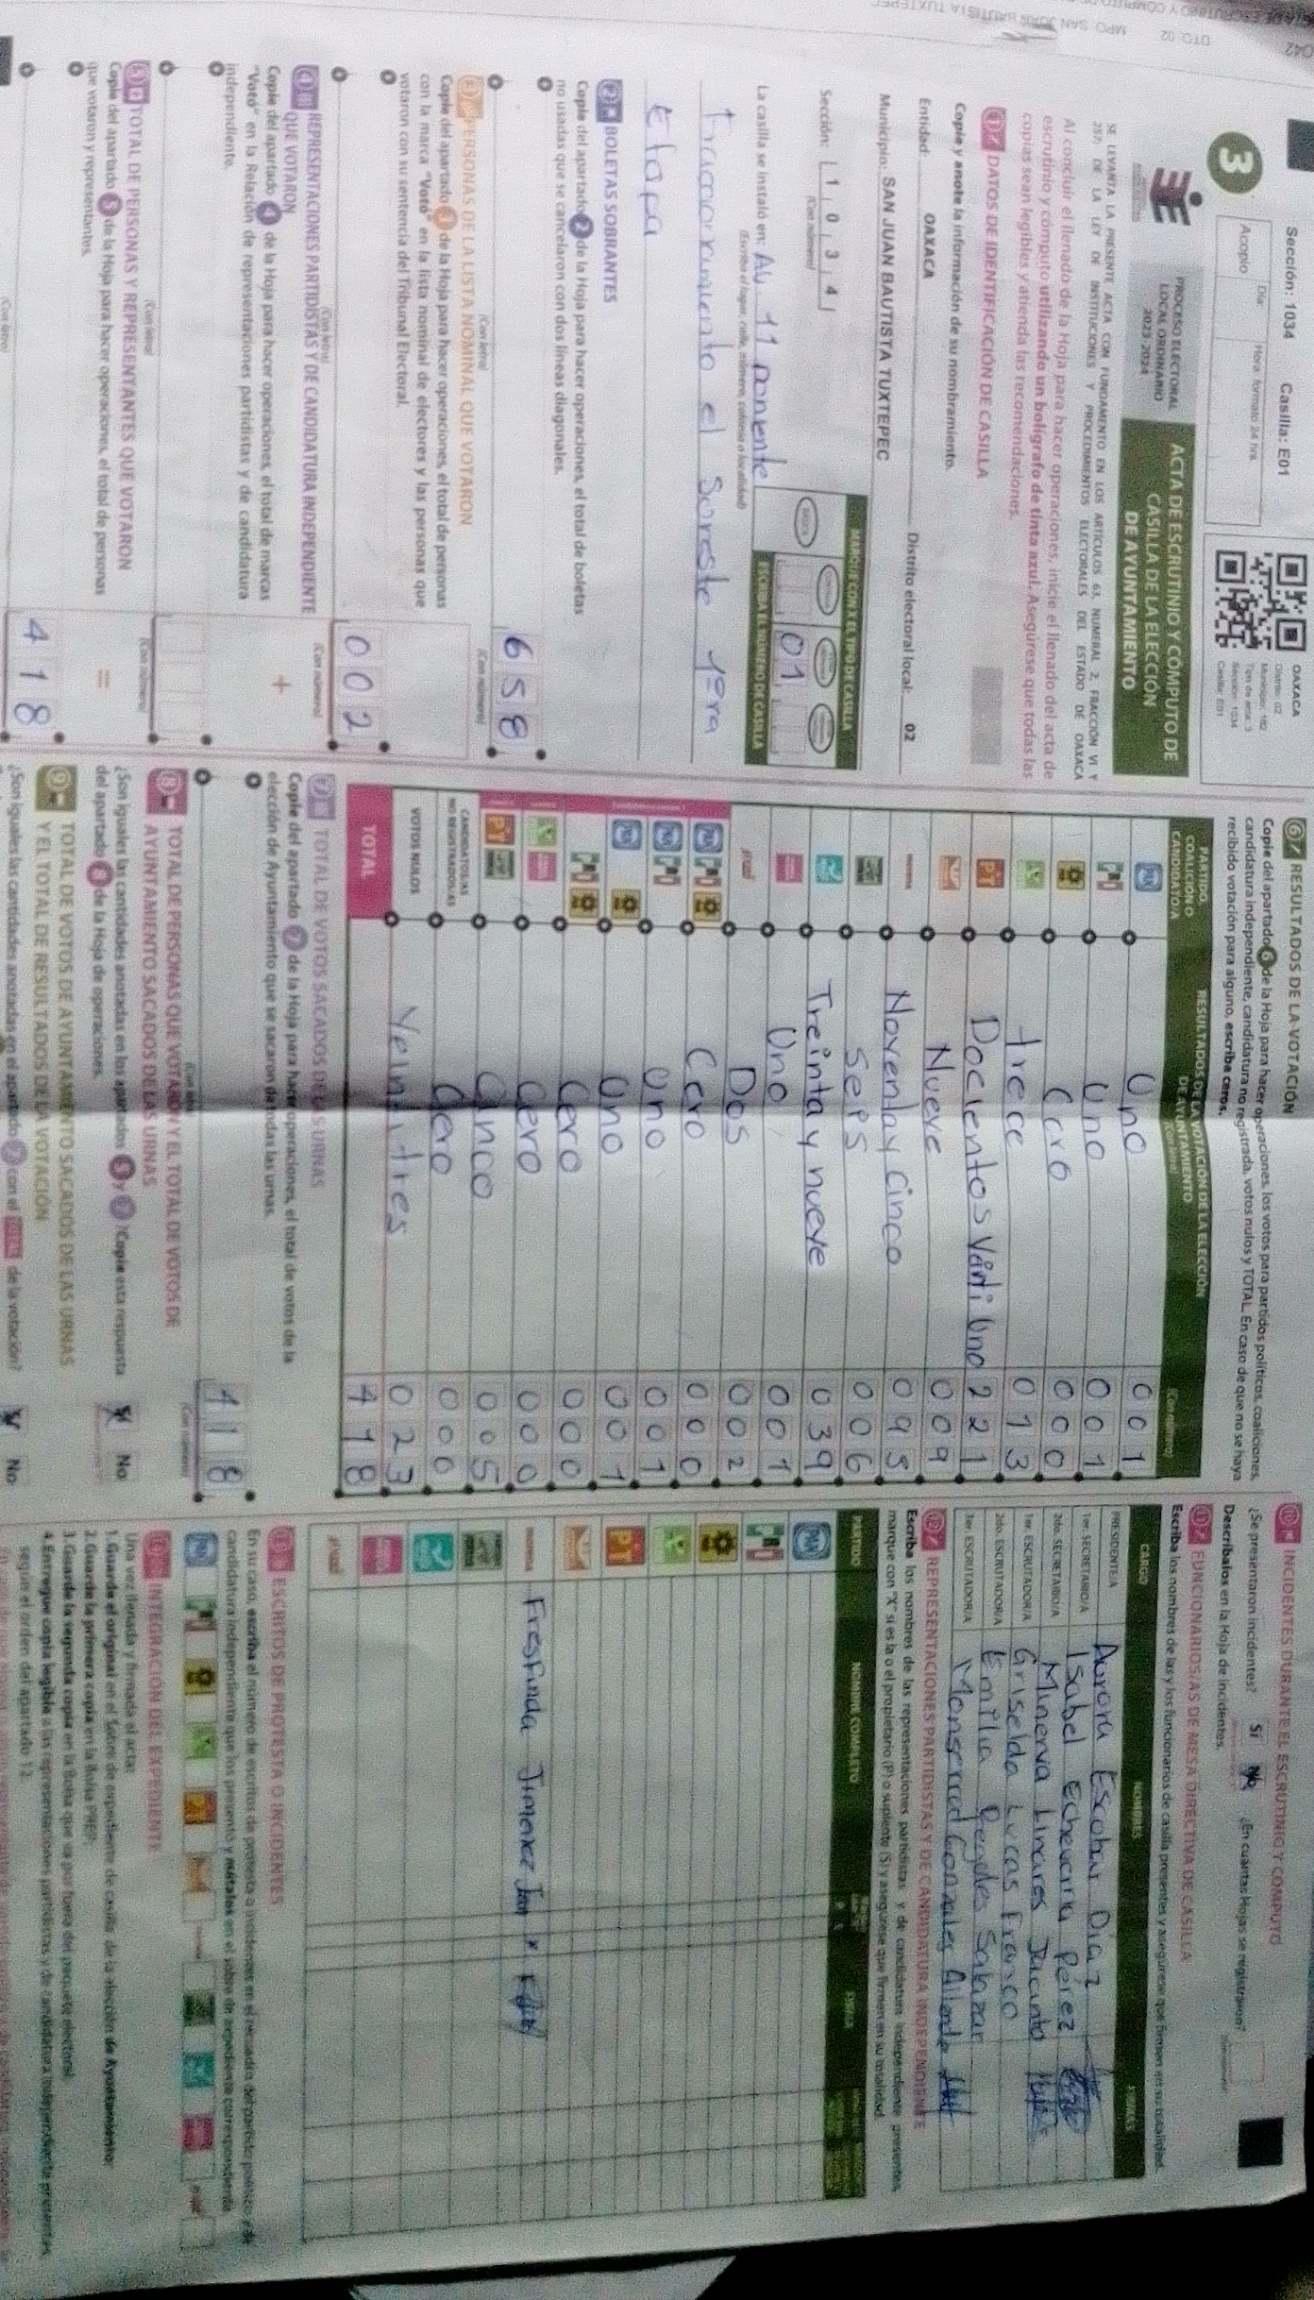 Sección: 1034 Casilla: E01
3
Acopio
Día:
Hora: formato 24 hrs.
OAXACA
Distrito: 02
Municipio: 182
Tipo de acta: 3
Sección: 1034
Casilla: E01
PROCESO ELECTORAL
LOCAL ORDINARIO
2023-2024
ACTA DE ESCRUTINIO Y CÓMPUTO DE
CASILLA DE LA ELECCIÓN
DE AYUNTAMIENTO
SE LEVANTA LA PRESENTE ACTA CON FUNDAMENTO EN LOS ARTÍCULOS 63, NUMERAL 2, FRACCIÓN VI Y
257, DE LA LEY DE INSTITUCIONES Y PROCEDIMIENTOS ELECTORALES DEL ESTADO DE OAXACA
Al concluir el llenado de la Hoja para hacer operaciones, inicie el llenado del acta de
escrutinio y cómputo utilizando un bolígrafo de tinta azul. Asegúrese que todas las
copias sean legibles y atienda las recomendaciones.
1 DATOS DE IDENTIFICACIÓN DE CASILLA
Copie y anote la información de su nombramiento.
Entidad: OAXACA Distrito electoral local: 02
Municipio: SAN JUAN BAUTISTA TUXTEPEC
Sección: 1 0 3 4
(Con número)
MARQUE CON X EL TIPO DE CASILLA
01
ESCRIBA EL NÚMERO DE CASILLA
La casilla se instaló en: Av. 11 poniente
(Escriba el lugar, calle, número, colonia o localidad)
Fraccionamiento el Sureste 1era
Etapa
2 BOLETAS SOBRANTES
Copie del apartado 2 de la Hoja para hacer operaciones, el total de boletas
no usadas que se cancelaron con dos líneas diagonales.
658
(Con letra) (Con número)
3 PERSONAS DE LA LISTA NOMINAL QUE VOTARON
Copie del apartado 3 de la Hoja para hacer operaciones, el total de personas
con la marca "Votó" en la lista nominal de electores y las personas que
votaron con su sentencia del Tribunal Electoral.
002
(Con letra) (Con número)
4 REPRESENTACIONES PARTIDISTAS Y DE CANDIDATURA INDEPENDIENTE
QUE VOTARON
Copie del apartado 4 de la Hoja para hacer operaciones, el total de marcas
"Votó" en la Relación de representaciones partidistas y de candidatura
independiente.
+
(Con letra) (Con número)
5 TOTAL DE PERSONAS Y REPRESENTANTES QUE VOTARON
Copie del apartado 5 de la Hoja para hacer operaciones, el total de personas
que votaron y representantes.
=
418
(Con letra)
6 RESULTADOS DE LA VOTACIÓN
Copie del apartado 6 de la Hoja para hacer operaciones, los votos para partidos políticos, coaliciones,
candidatura independiente, candidatura no registrada, votos nulos y TOTAL. En caso de que no se haya
recibido votación para alguno, escriba ceros.
PARTIDO, COALICIÓN O CANDIDATO/A
RESULTADOS DE LA VOTACIÓN DE LA ELECCIÓN
DE AYUNTAMIENTO
(Con letra) (Con número)
PAN Uno 001
PRI Uno 001
PRD Cero 000
Trece 013
PT Docientos Veinti Uno 221
Nueve 009
morena Noventa y Cinco 095
Seps 006
Treinta y nueve 039
Uno 001
Dos 002
PAN PRI PRD Cero 000
PAN PRI Uno 001
PAN PRD Uno 001
PRI PRD Cero 000
Cero 000
PT Cinco 005
CANDIDATOS/AS
NO REGISTRADOS/AS Cero 000
VOTOS NULOS Vein tres 023
TOTAL 418
7 TOTAL DE VOTOS SACADOS DE LAS URNAS
Copie del apartado 7 de la Hoja para hacer operaciones, el total de votos de la
elección de Ayuntamiento que se sacaron de todas las urnas.
418
(Con letra) (Con número)
8 TOTAL DE PERSONAS QUE VOTARON Y EL TOTAL DE VOTOS DE
AYUNTAMIENTO SACADOS DE LAS URNAS
¿Son iguales las cantidades anotadas en los apartados 5 y 7? Copie esta respuesta
del apartado 8 de la Hoja de operaciones. Sí No
9 TOTAL DE VOTOS DE AYUNTAMIENTO SACADOS DE LAS URNAS
Y EL TOTAL DE RESULTADOS DE LA VOTACIÓN
¿Son iguales las cantidades anotadas en el apartado 7 con el TOTAL de la votación? Sí No
10 INCIDENTES DURANTE EL ESCRUTINIO Y CÓMPUTO
¿Se presentaron incidentes? Sí No ¿En cuántas Hojas se registraron?
Descríbalos en la Hoja de incidentes.
11 FUNCIONARIOS/AS DE MESA DIRECTIVA DE CASILLA
Escriba los nombres de las y los funcionarios de casilla presentes y asegúrese que firmen en su totalidad.
CARGO NOMBRES FIRMAS
PRESIDENTE/A Aurora Escobar Diaz
1er. SECRETARIO/A Isabel Echeverria Pérez
2do. SECRETARIO/A Minerva Linares Jacinto
1er. ESCRUTADOR/A Griselda Lucas Franco
2do. ESCRUTADOR/A Emilia Regules Salazar
3er. ESCRUTADOR/A Monserrad Gonzales Allende
12 REPRESENTACIONES PARTIDISTAS Y DE CANDIDATURA INDEPENDIENTE
Escriba los nombres de las representaciones partidistas y de candidatura independiente presentes,
marque con "X" si es la o el propietario (P) o suplente (S) y asegúrese que firmen en su totalidad.
PARTIDO NOMBRE COMPLETO FIRMA
PAN
PRI
PRD
PT
morena Fresfinda Jimenez Juan x
13 ESCRITOS DE PROTESTA O INCIDENTES
En su caso, escriba el número de escritos de protesta o incidentes en el recuadro del partido político y de
candidatura independiente que los presentó y métalos en el sobre de expediente correspondiente.
14 INTEGRACIÓN DEL EXPEDIENTE
Una vez llenada y firmada el acta:
1. Guarde el original en el Sobre de expediente de casilla de la elección de Ayuntamiento.
2. Guarde la primera copia en la Bolsa PREP.
3. Guarde la segunda copia en la Bolsa que va por fuera del paquete electoral.
4. Entregue copia legible a las representaciones partidistas y de candidatura independiente presentes,
según el orden del apartado 12.